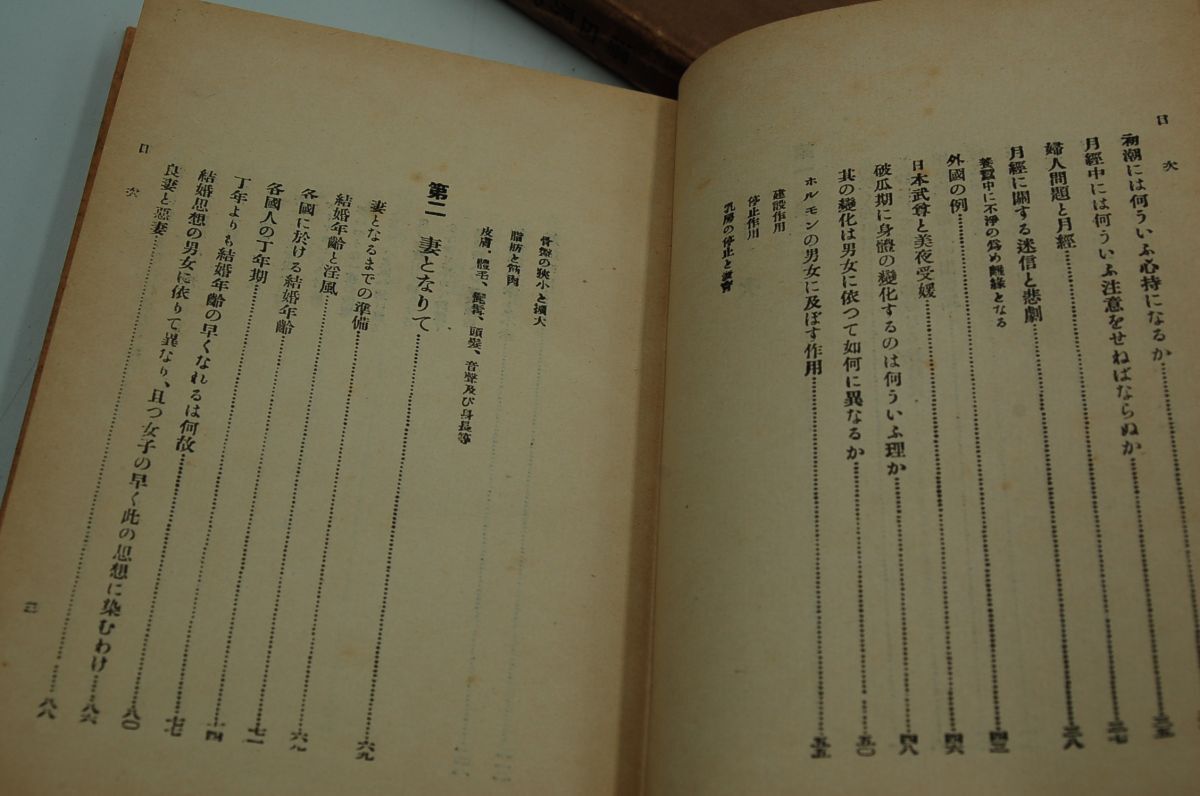 目次
初潮には何ういふ心持になるか
月經中には何ういふ注意をせねばならぬか
婦人問題と月經
月經に關する迷信と悲劇
養蠶中に不淨の爲め離緣となる
外國の例
日本武尊と美夜受媛
破瓜期に身體の變化するのは何ういふ理か
其の變化は男女に依つて如何に異なるか
ホルモンの男女に及ぼす作用
建設作用
停止作用
乳房の停止と發育
骨盤の狹小と擴大
脂肪と筋肉
皮膚、體毛、鬚髯、頭髮、音聲及び身長等
第二 妻となりて
妻となるまでの準備 六九
結婚年齡と淫風
各國に於ける結婚年齡 六九
各國人の丁年期 七一
丁年よりも結婚年齡の早くなれるは何故
結婚思想の男女に依りて異なり、且つ女子の早く此の思想に染むわけ
良妻と惡妻
目次